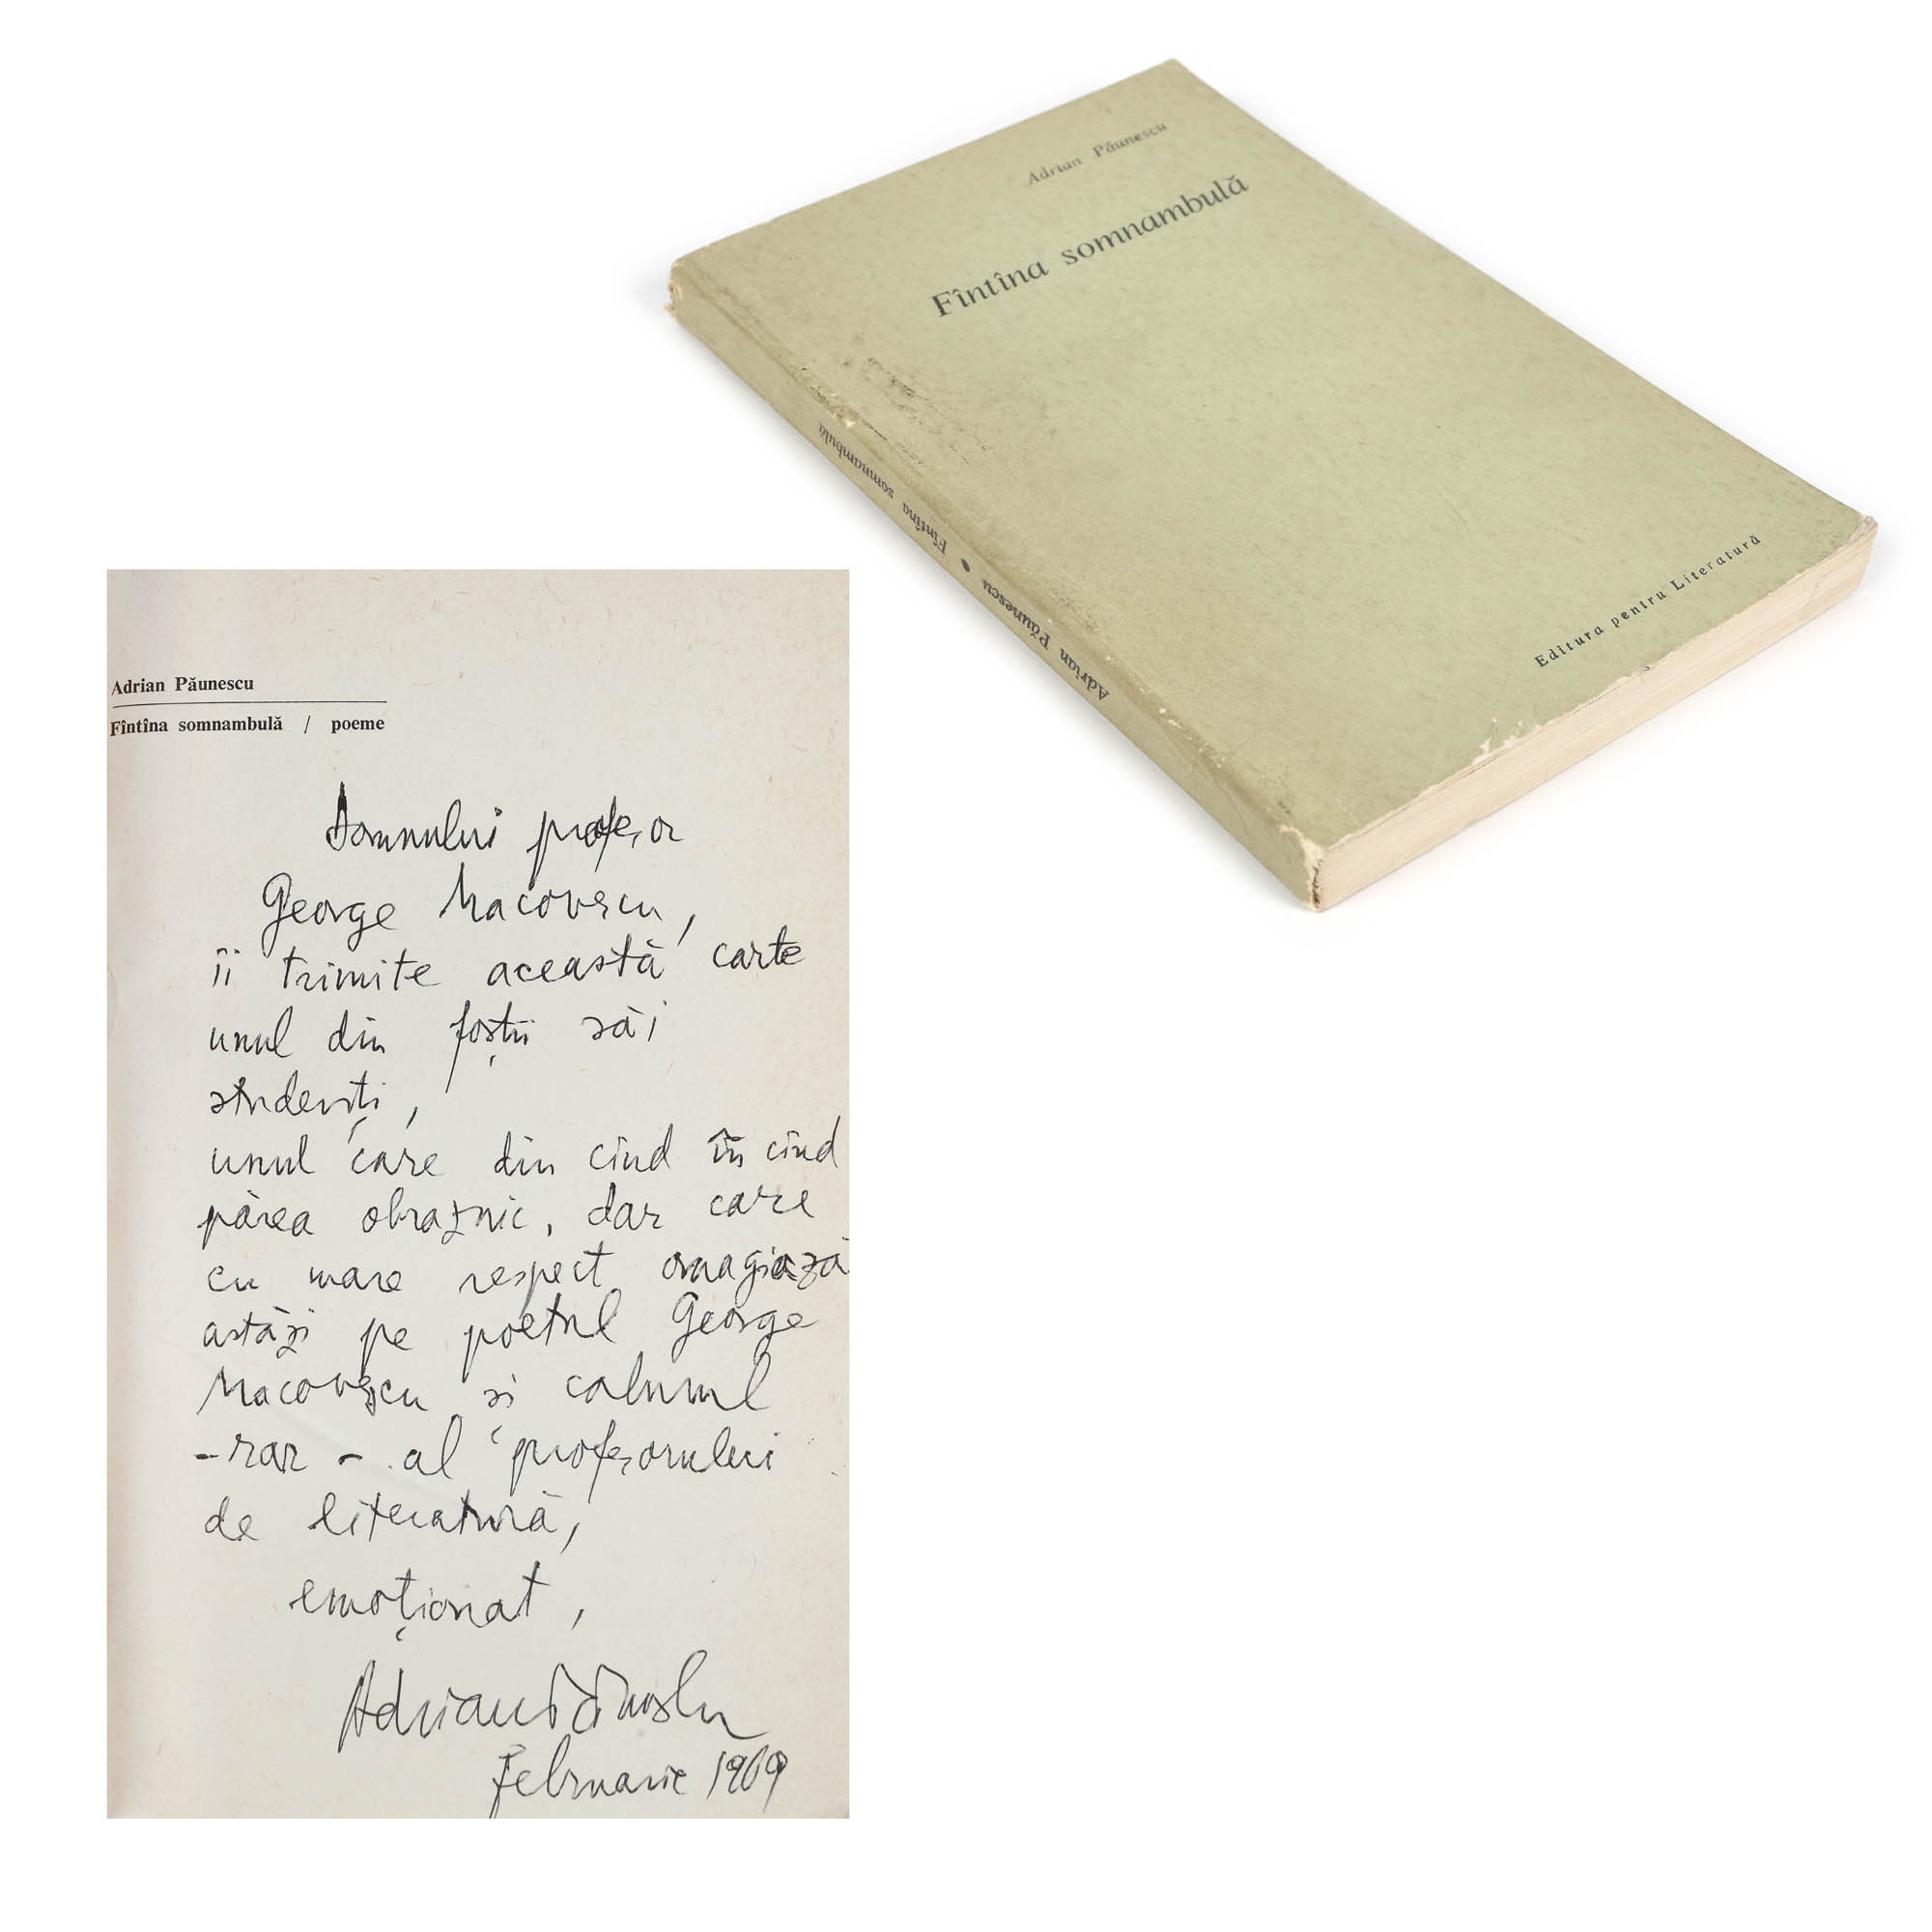 Adrian Păunescu
Fîntîna somnambulă
Editura pentru Literatură
Adrian Păunescu • Fîntîna somnambulă
Adrian Păunescu
Fîntîna somnambulă / poeme
Domnului profesor
George Macovescu,
îi trimite această carte
unul din foștii săi
studenți,
unul care din cînd în cînd
părea obraznic, dar care
cu mare respect omagiază
astăzi pe poetul George
Macovescu și calmul
- rar - al profesorului
de literatură,
emoționat,
Adrian Păunescu
Februarie 1969